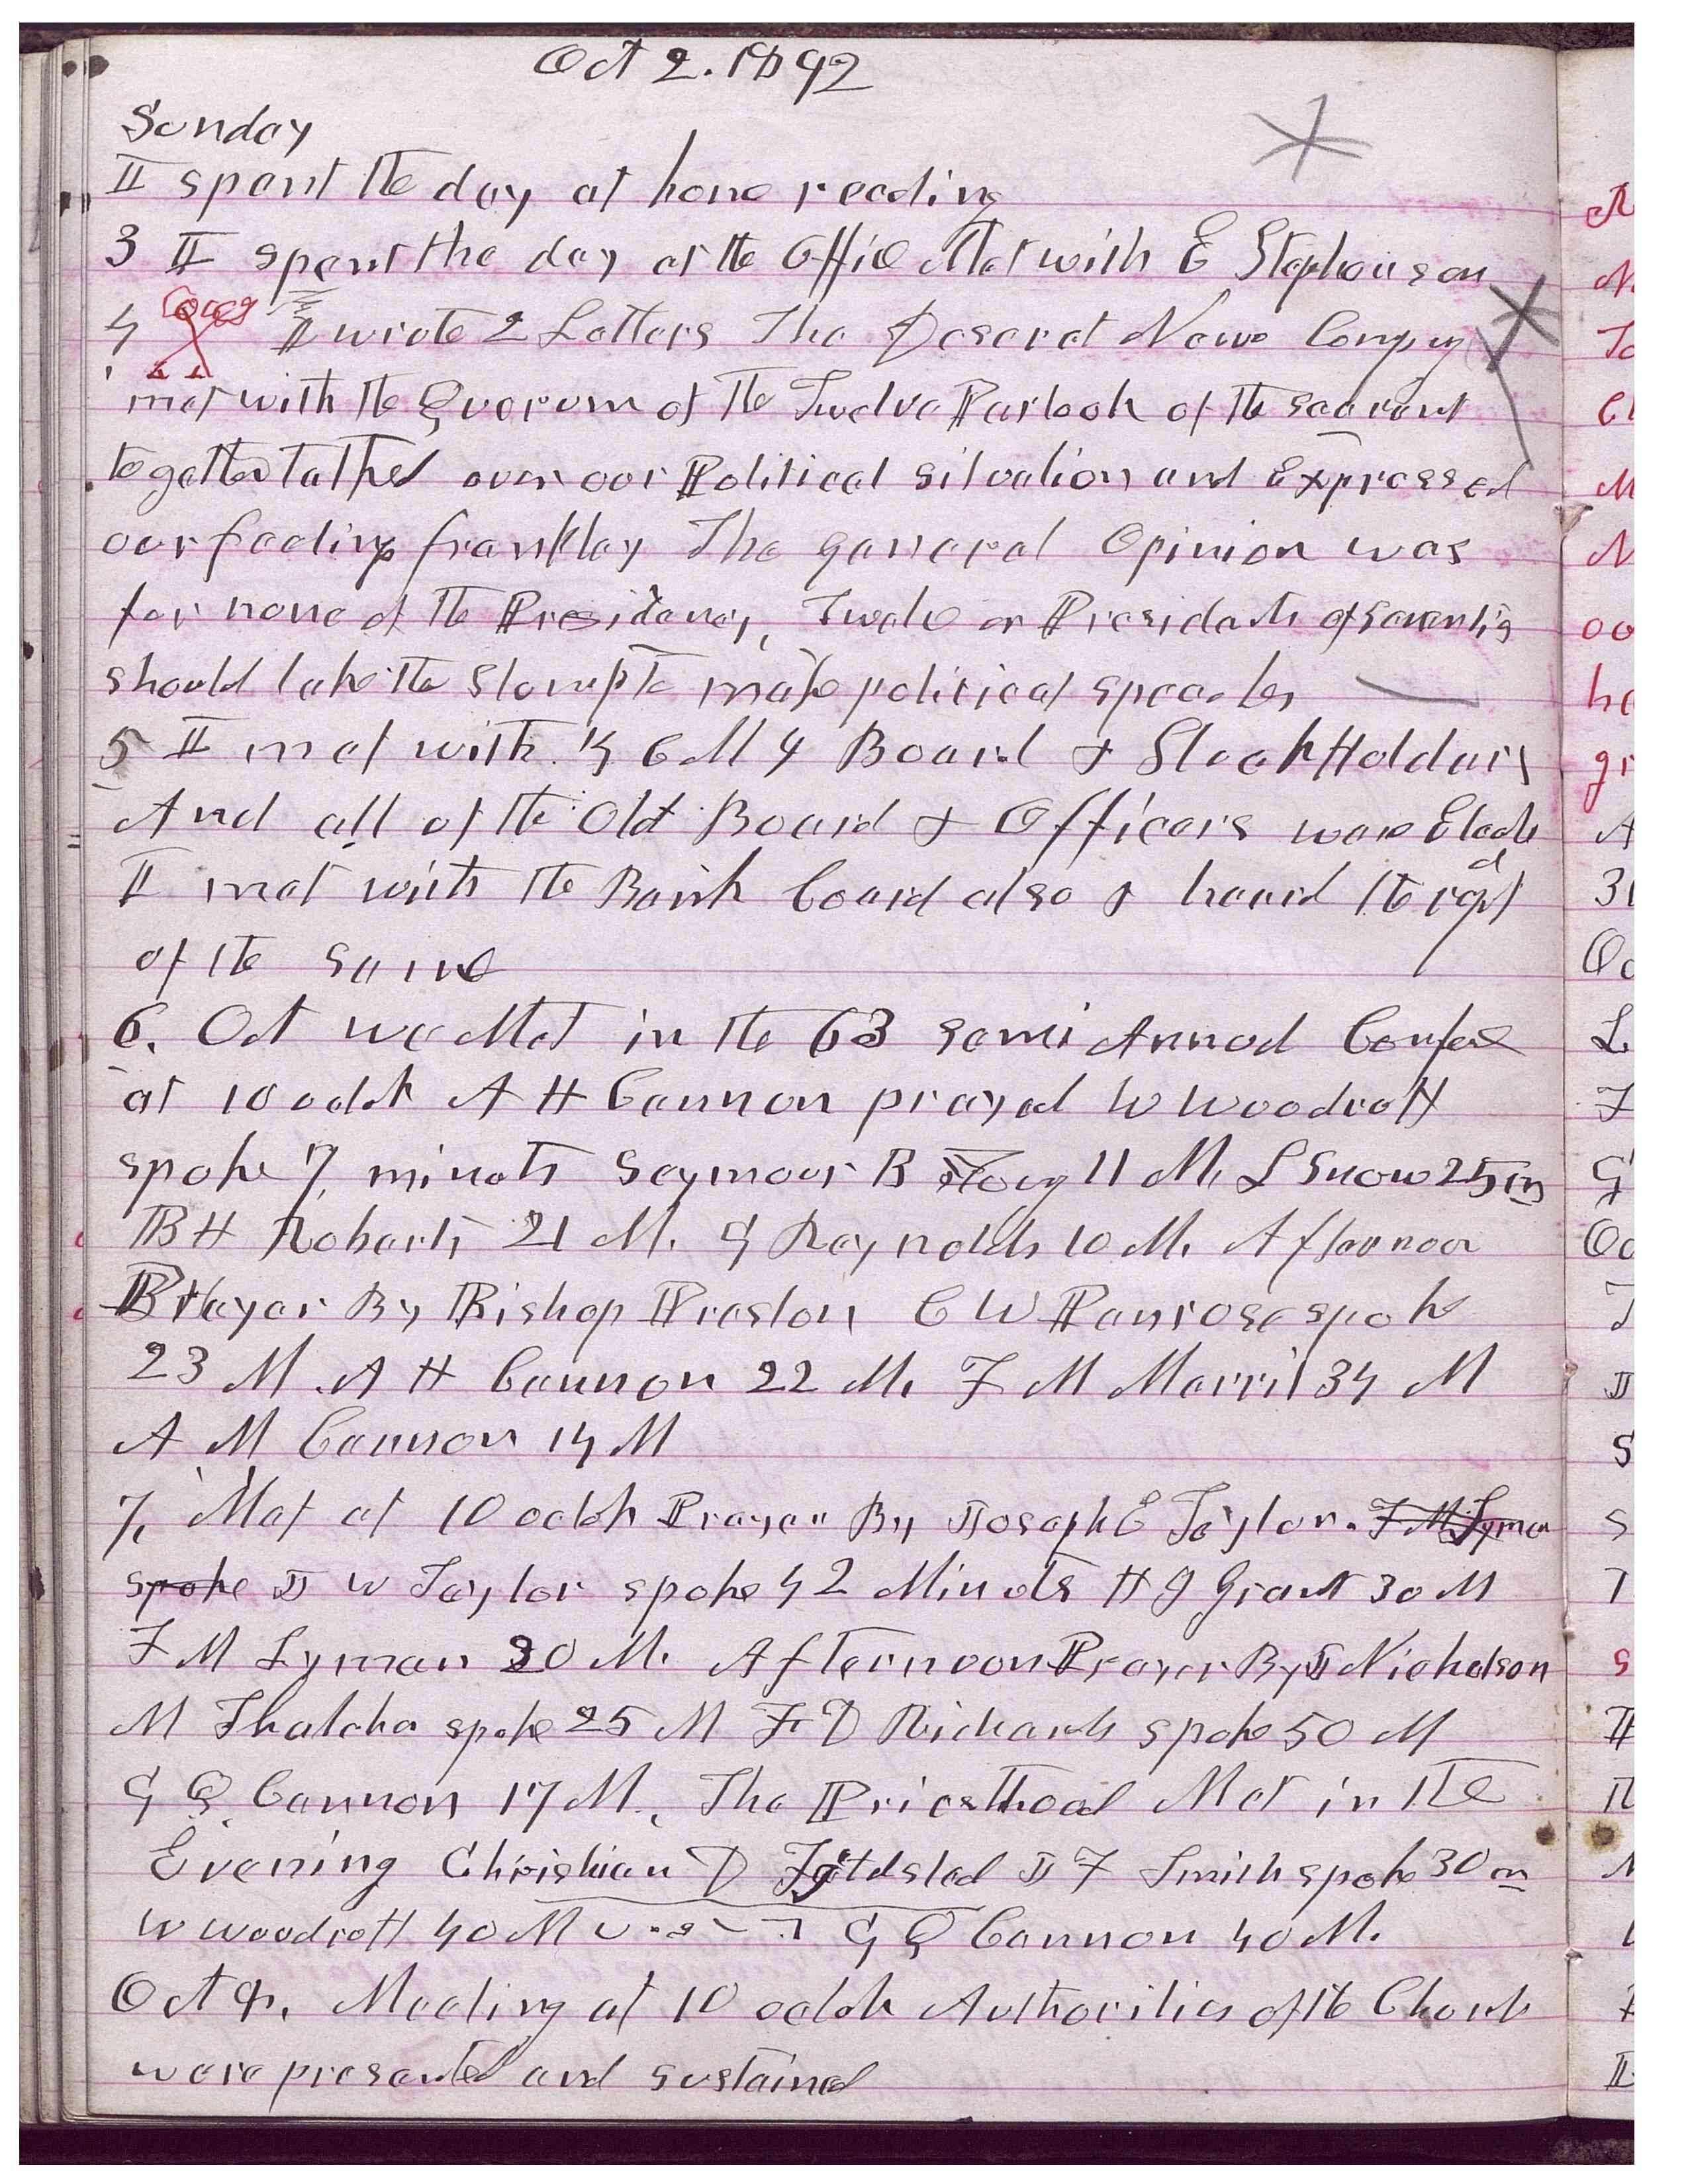 Oct 2. 1892
Sunday
I spent the day at home reading
3 I spent the day at the Office Met with E Stephenson
4 I wrote 2 Letters The Deseret News Compny
met with the Quorum of the Twelve Partook of the sacrament
together talked over our Political situation and Expressed
our feeling frankley The general Opinion was
for none of the Presidency, Twelve or Presidents of seventies
should take the stump to make political speeches
5 I met with Z C M I Board & Stock Holders
And all of the Old Board & Officers were Elected
I met with the Bank board also & heard the repot
of the same
6. Oct we Met in the 63 semi Annual Confere
at 10 oclok A H Cannon prayed W Woodruff
spoke 7 minuts Seymour B Young 11 M. L Snow 25 m
B H Roberts 21 M. G Reynolds 10 M. Afternoon
Prayer By Bishop Preston C W Penrose spoke
23 M. A H Cannon 22 M. F M Merril 34 M
A M Cannon 14 M
7. Met at 10 oclok Prayer By Joseph E Taylor. F M Lyman
spoke J W Taylor spoke 42 Minuts H J Grant 30 M
F M Lyman 20 M. Afternoon Prayer By J Nicholson
M Thatcher spoke 25 M F D Richards spoke 50 M
G Q Cannon 17 M. The Priesthood Met in the
Evening Christian D Fjeldsted J F Smith spoke 30 m
W Woodruff 40 M G Q Cannon 40 M.
Oct 9. Meeting at 10 oclok Authorities of the Church
were presented and sustained